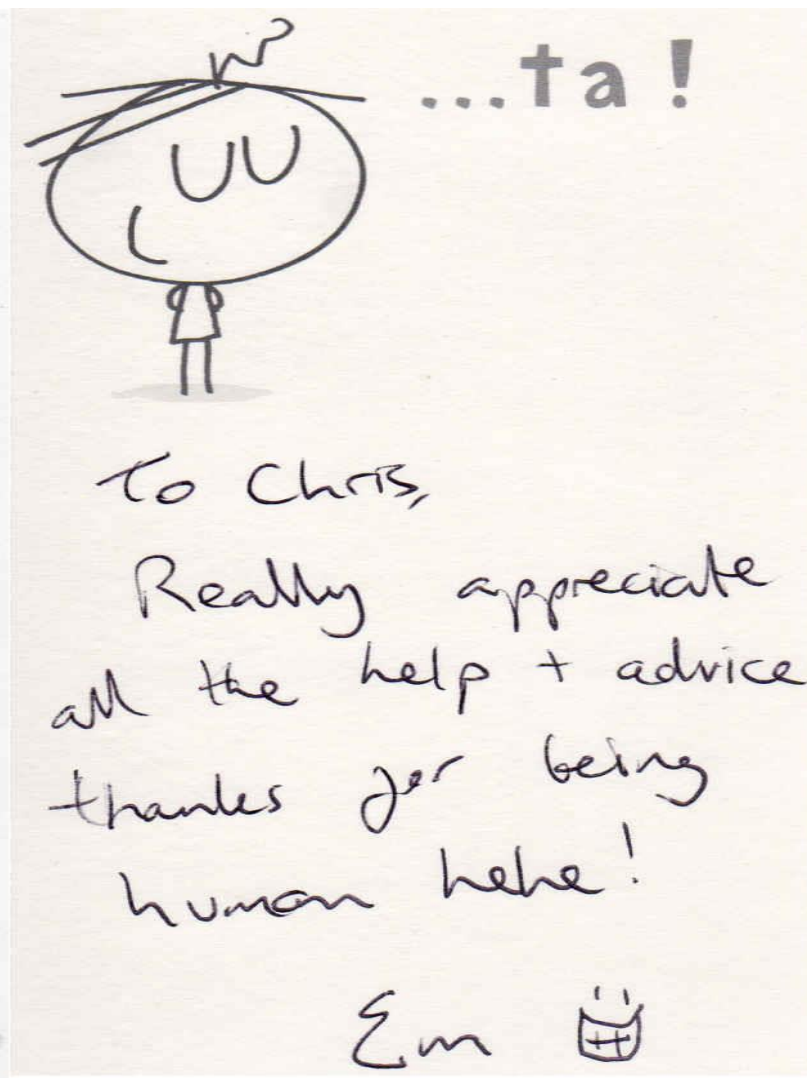 ...ta!
To Chris,
Really appreciate
all the help + advice
thanks for being
human hehe!
Em